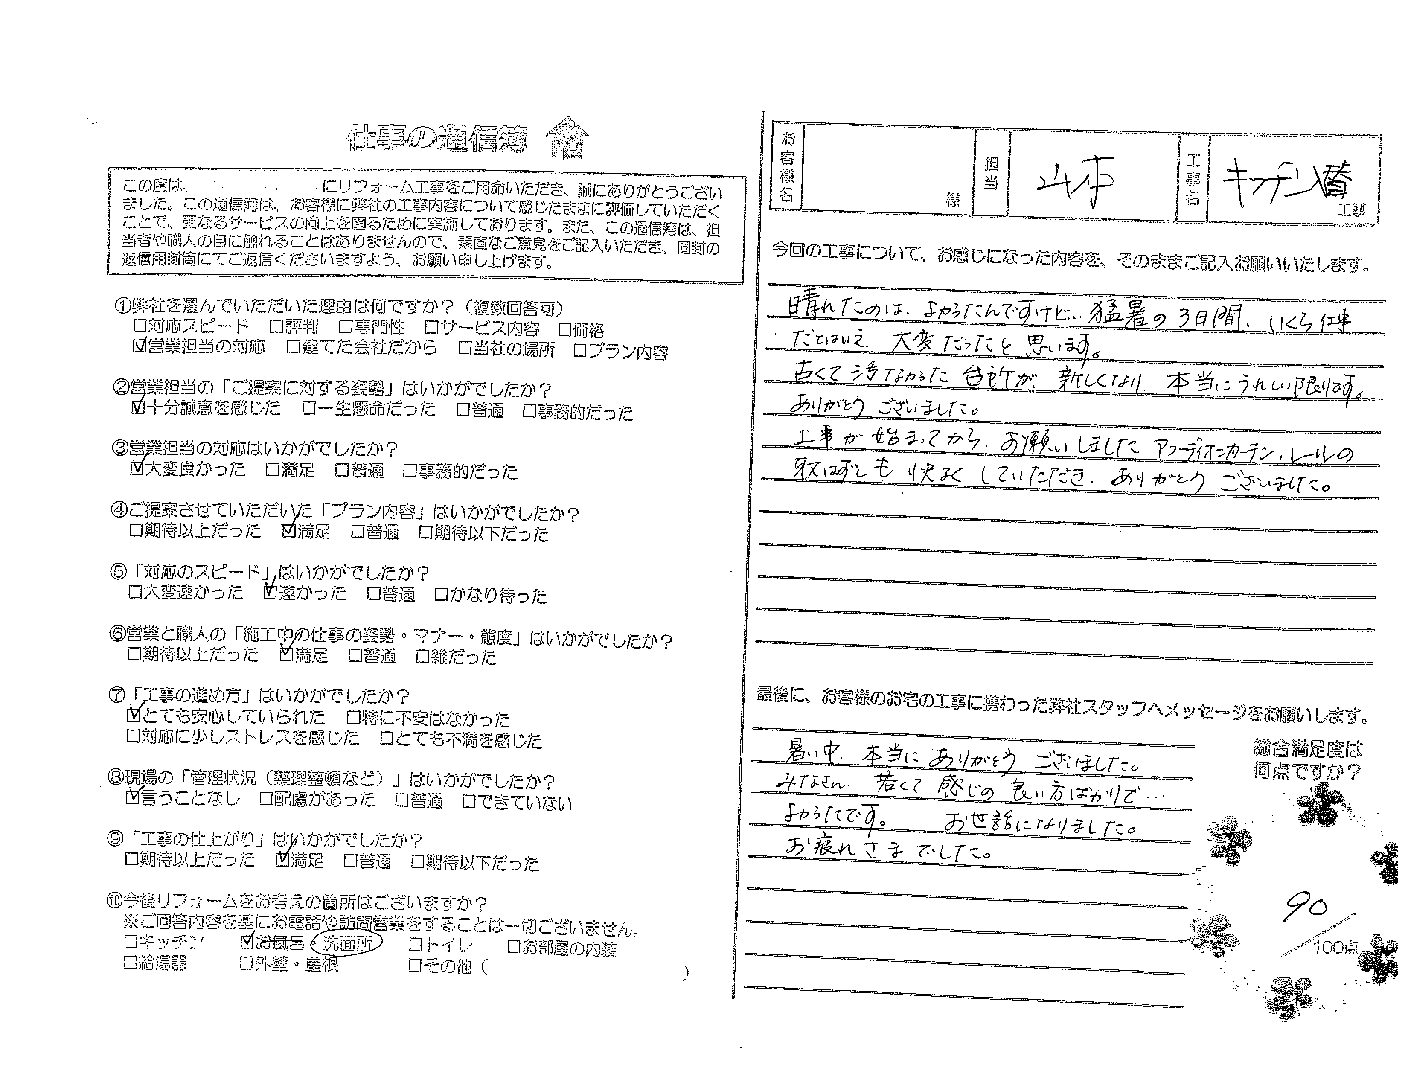 仕事の通信簿
この度は、　　　　にリフォーム工事をご用命いただき、誠にありがとうござい
ました。この通信簿は、お客様に弊社の工事内容について感じたままに評価していただく
ことで、更なるサービスの向上を図るために実施しております。また、この通信簿は、担
当者や職人の目に触れることはありませんので、素直なご意見をご記入いただき、同封の
返信用封筒にてご返信くださいますよう、お願い申し上げます。
①弊社を選んでいただいた理由は何ですか？（複数回答可）
□対応スピード　□評判　□専門性　□サービス内容　□価格
☑営業担当の対応　□建てた会社だから　□当社の場所　□プラン内容
②営業担当の「ご提案に対する姿勢」はいかがでしたか？
☑十分誠意を感じた　□一生懸命だった　□普通　□事務的だった
③営業担当の対応はいかがでしたか？
☑大変良かった　□満足　□普通　□事務的だった
④ご提案させていただいた「プラン内容」はいかがでしたか？
□期待以上だった　☑満足　□普通　□期待以下だった
⑤「対応のスピード」はいかがでしたか？
□大変速かった　☑速かった　□普通　□かなり待った
⑥営業と職人の「施工中の仕事の姿勢・マナー・態度」はいかがでしたか？
□期待以上だった　☑満足　□普通　□雑だった
⑦「工事の進め方」はいかがでしたか？
☑とても安心していられた　□特に不安はなかった
□対応に少しストレスを感じた　□とても不満を感じた
⑧現場の「管理状況（整理整頓など）」はいかがでしたか？
☑言うことなし　□配慮があった　□普通　□できていない
⑨「工事の仕上がり」はいかがでしたか？
□期待以上だった　☑満足　□普通　□期待以下だった
⑩今後リフォームをお考えの箇所はございますか？
※ご回答内容を基にお電話や訪問営業をすることは一切ございません。
□キッチン　☑お風呂　洗面所　□トイレ　□お部屋の内装
□給湯器　□外壁・屋根　□その他（　　　）
お客様名　様　担当　山本　工事名　キッチン入替　工事
今回の工事について、お感じになった内容を、そのままご記入お願いいたします。
晴れたのは、よかったんですけど… 猛暑の3日間、いくら仕事
だとはいえ 大変だったと思います。
古くて汚なかった台所が 新しくなり 本当にうれしい限りです。
ありがとうございました。
工事が始まってから、お願いしました アコーディオンカーテン・レールの
取はずしも 快よくしていただき、ありがとうございました。
最後に、お客様のお宅の工事に携わった弊社スタッフへメッセージをお願いします。
暑い中、本当にありがとうございました。
みなさん 若くて 感じの良い方ばかりで…
よかったです。 お世話になりました。
お疲れさまでした。
総合満足度は
何点ですか？
90
／100点